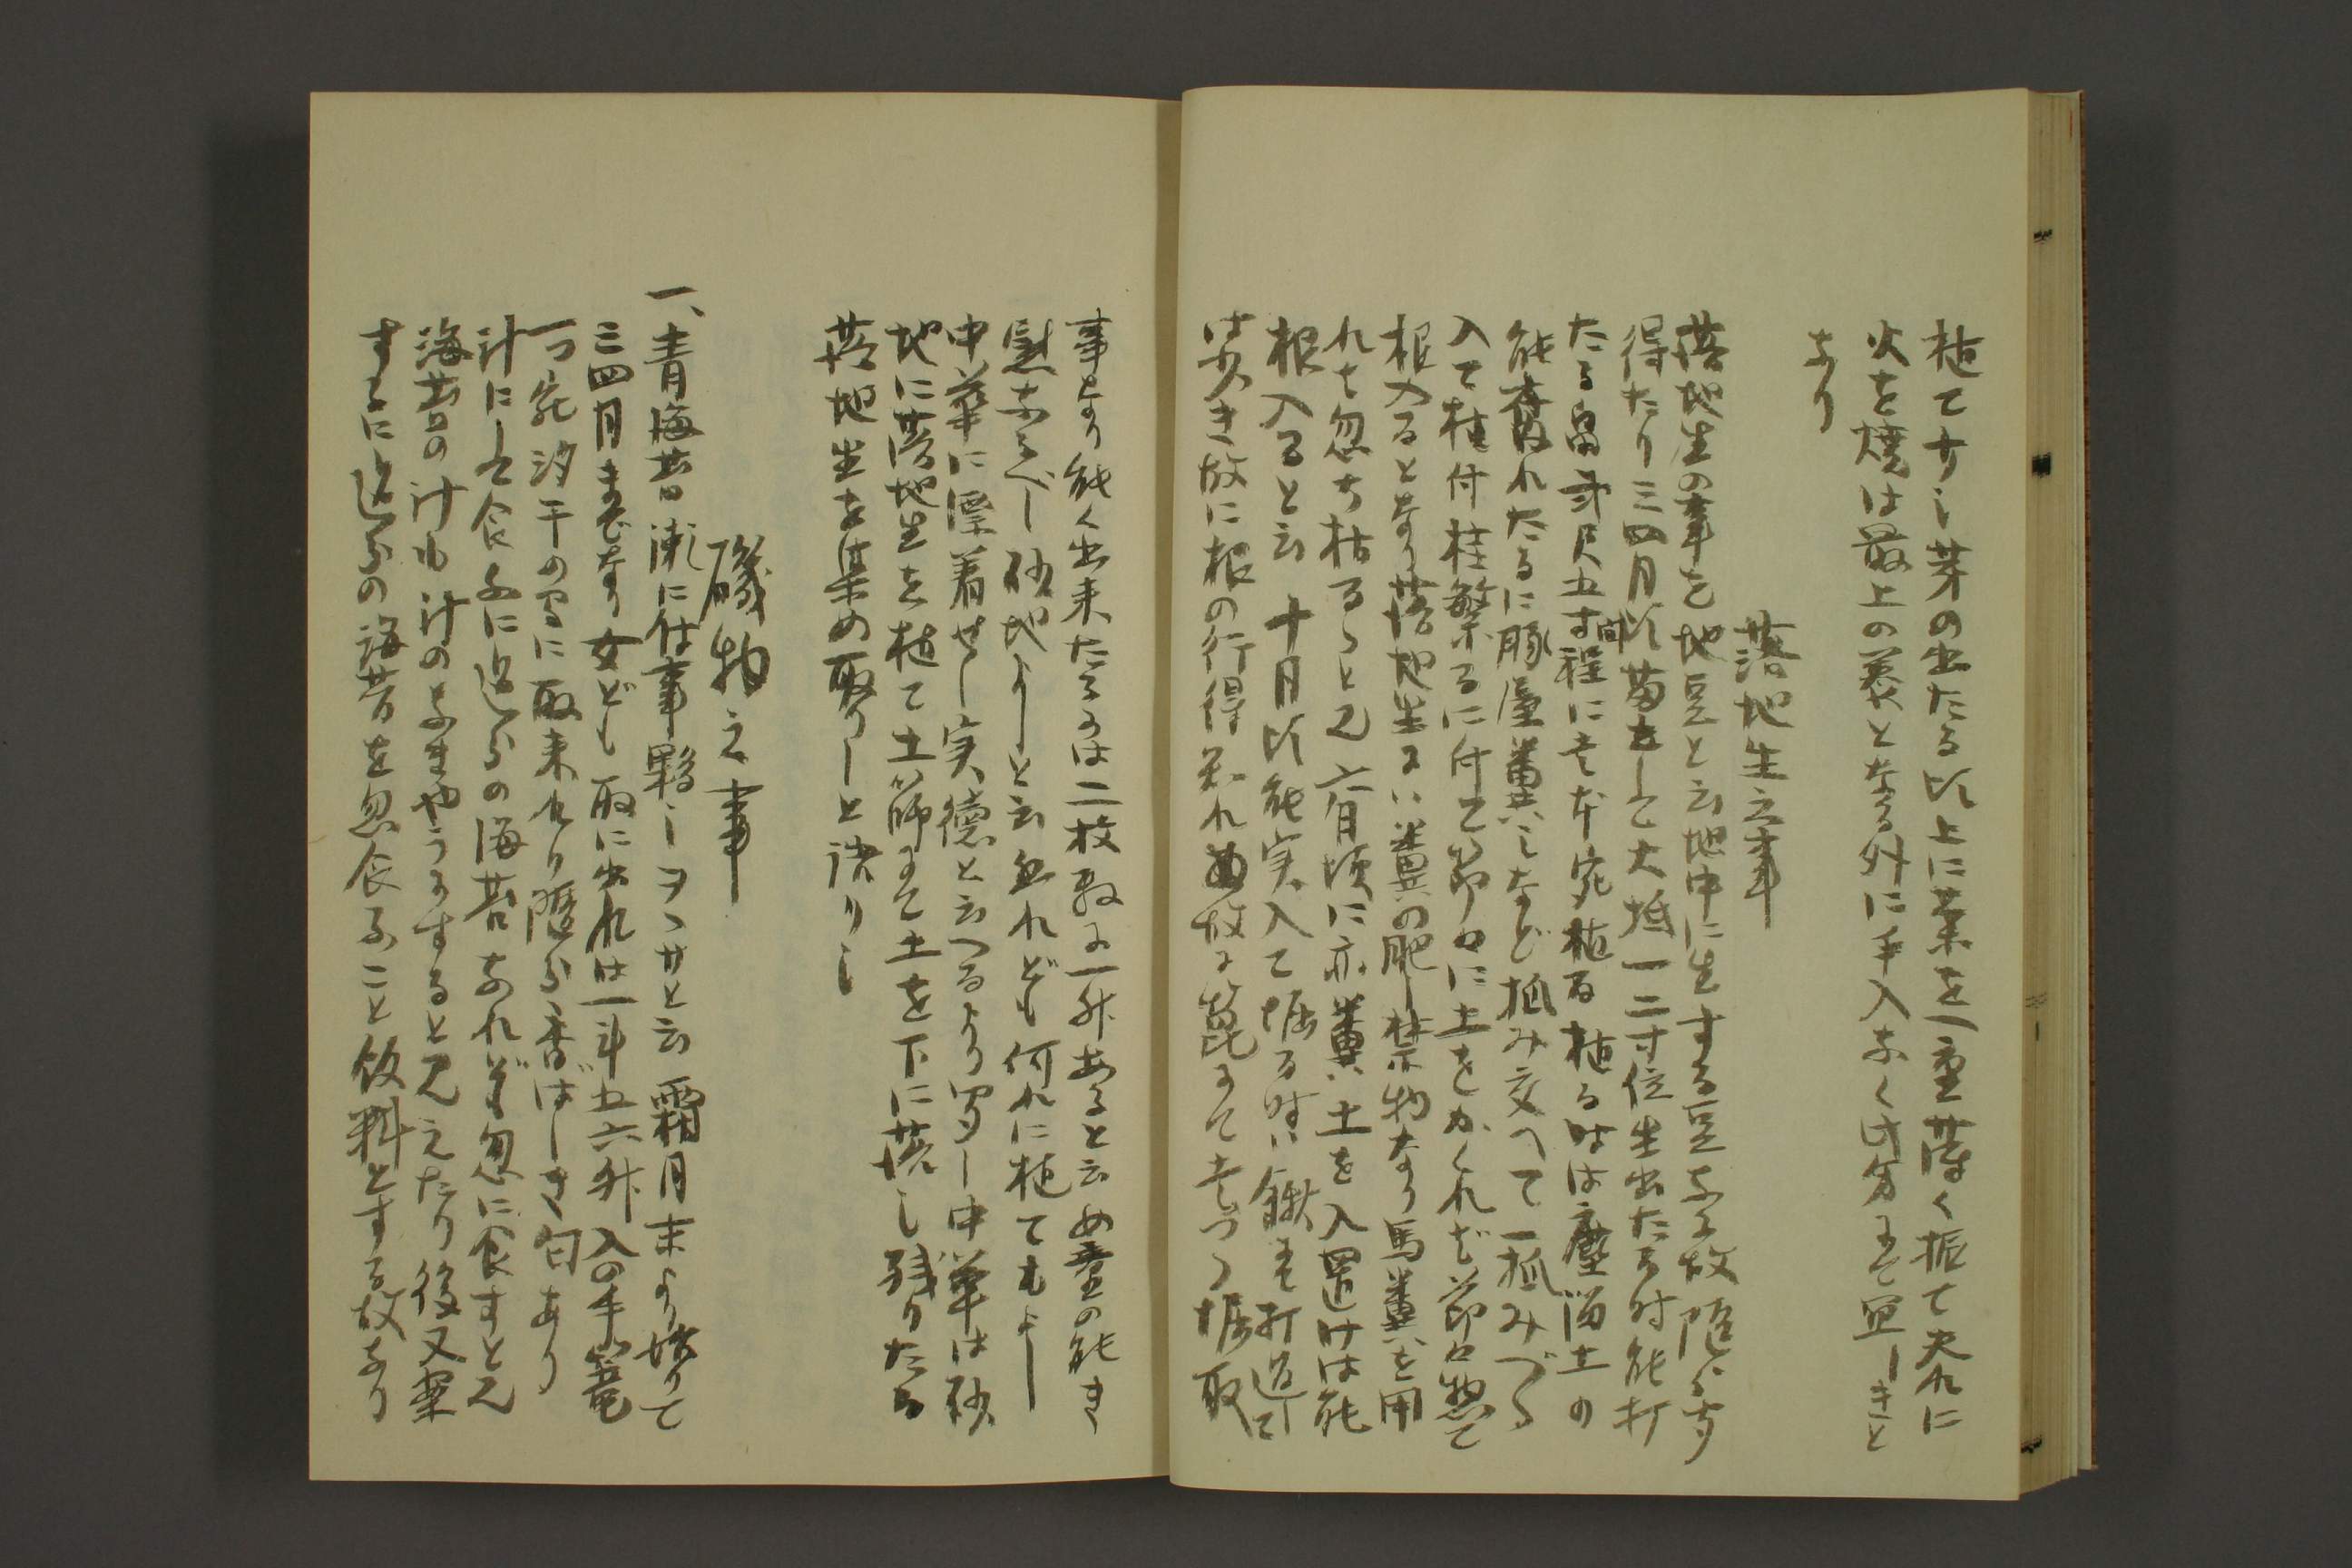 植て廿日芽の出たる比上に藁を一重薄く振て夫れに
火を焼は最上の養となる外に手入なく此分にて宜しきと
なり
落地生之事
落地生の事を地豆と云地中に生する豆なる故
得たり三四月比蒔立して大抵一二寸位生出たる時能打
たる畠弐尺五寸間程に壱本宛植る植る時は塵溜土の
能腐れたるに豚屋糞しなど抓み交へて一抓みづゝ
入て植付桂繁るに付て節々に土をかくれば節々惣て
根入るとなり落地生には糞の肥し禁物なり馬糞を用
れは忽ち枯るゝと也六月頃に亦糞土を入置けは能
根入ると云十月比能実入て堀る時は鍬を打込
は実き故に根の行得難れぬ故に篦にて壱つゝ堀取
事なり能く出来たるには二枚敷に一升あると云女童の能き
慰なるべし砂地よしと云処れども何れに植てもよし
中華に漂着せし実徳と云へるより聞し中華は砂
地に落地生を植て土篩にて土を下に落し残りたる
落地生を集め取りしと語りし
磯物之事
一、青海苔漸に仕事夥しヲヽサと云霜月末より始りて
三四月までなり女ども取に出れは一斗五六升入の手籠
一つ宛汐干の間に取来れり随分香ばしき匂あり
汁にして食ふに随分の海苔なれども忽に食すと又
海苔の汁も汁のよきやうにすると見えたり後又粟
するに随分の海苔を忽食ふこと飯料とする故なり